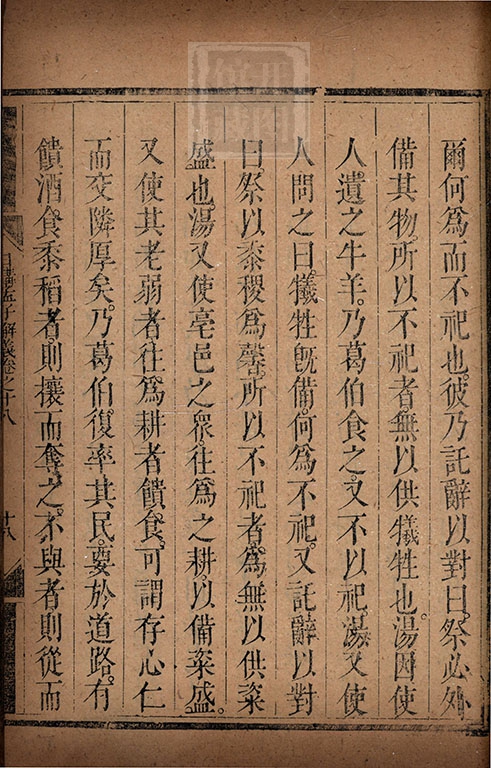 爾何爲而不祀也。彼乃託辭以對曰。祭必外
備其物。所以不祀者無以供犧牲也。湯因使
人遺之牛羊。乃葛伯食之。又不以祀。湯又使
人問之曰。犧牲既備。何爲不祀。又託辭以對
曰。祭以黍稷爲馨。所以不祀者。爲無以供粢
盛也湯又使亳邑之衆。往爲之耕。以備粢盛。
又使其老弱者往爲耕者饋食。可謂存心仁
而交隣厚矣。乃葛伯。復率其民。要於道路。有
饋酒食。黍稻者。則攘而奪之。不與者則從而
日講孟子解義卷之十八
十八